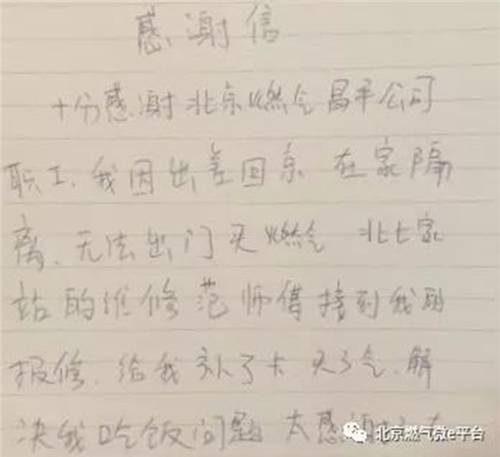 感谢信
十分感谢北京燃气昌平公司
职工,我因出差回京 在家隔
离,无法出门买燃气 北七家
站的维修范师傅接到我的
报修,给我补了卡 买了气,解
决我吃饭问题 太感谢
北京燃气微e平台